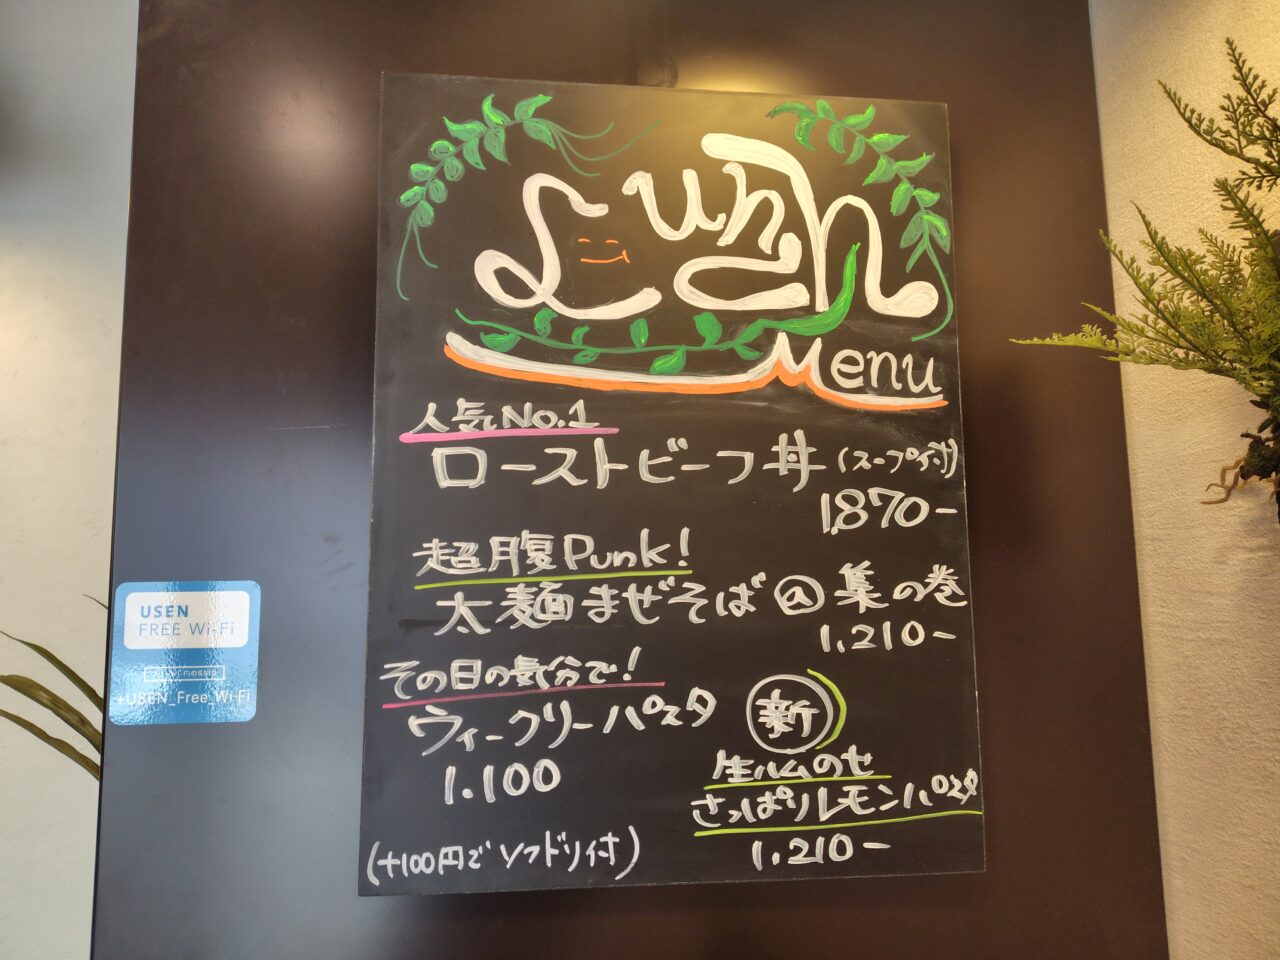 Lunch
Menu
人気No.1
ローストビーフ丼(スープ付)
1,870-
超腹Punk!
太麺まぜそば
集の巻
1.210-
その日の気分で!
ウィークリーパスタ
1.100
新
生ハムのせ
さっぱりレモンパスタ
1.210-
(+100円でソフドリ付)
USEN
FREE Wi-Fi
+USEN_Free_Wi-Fi